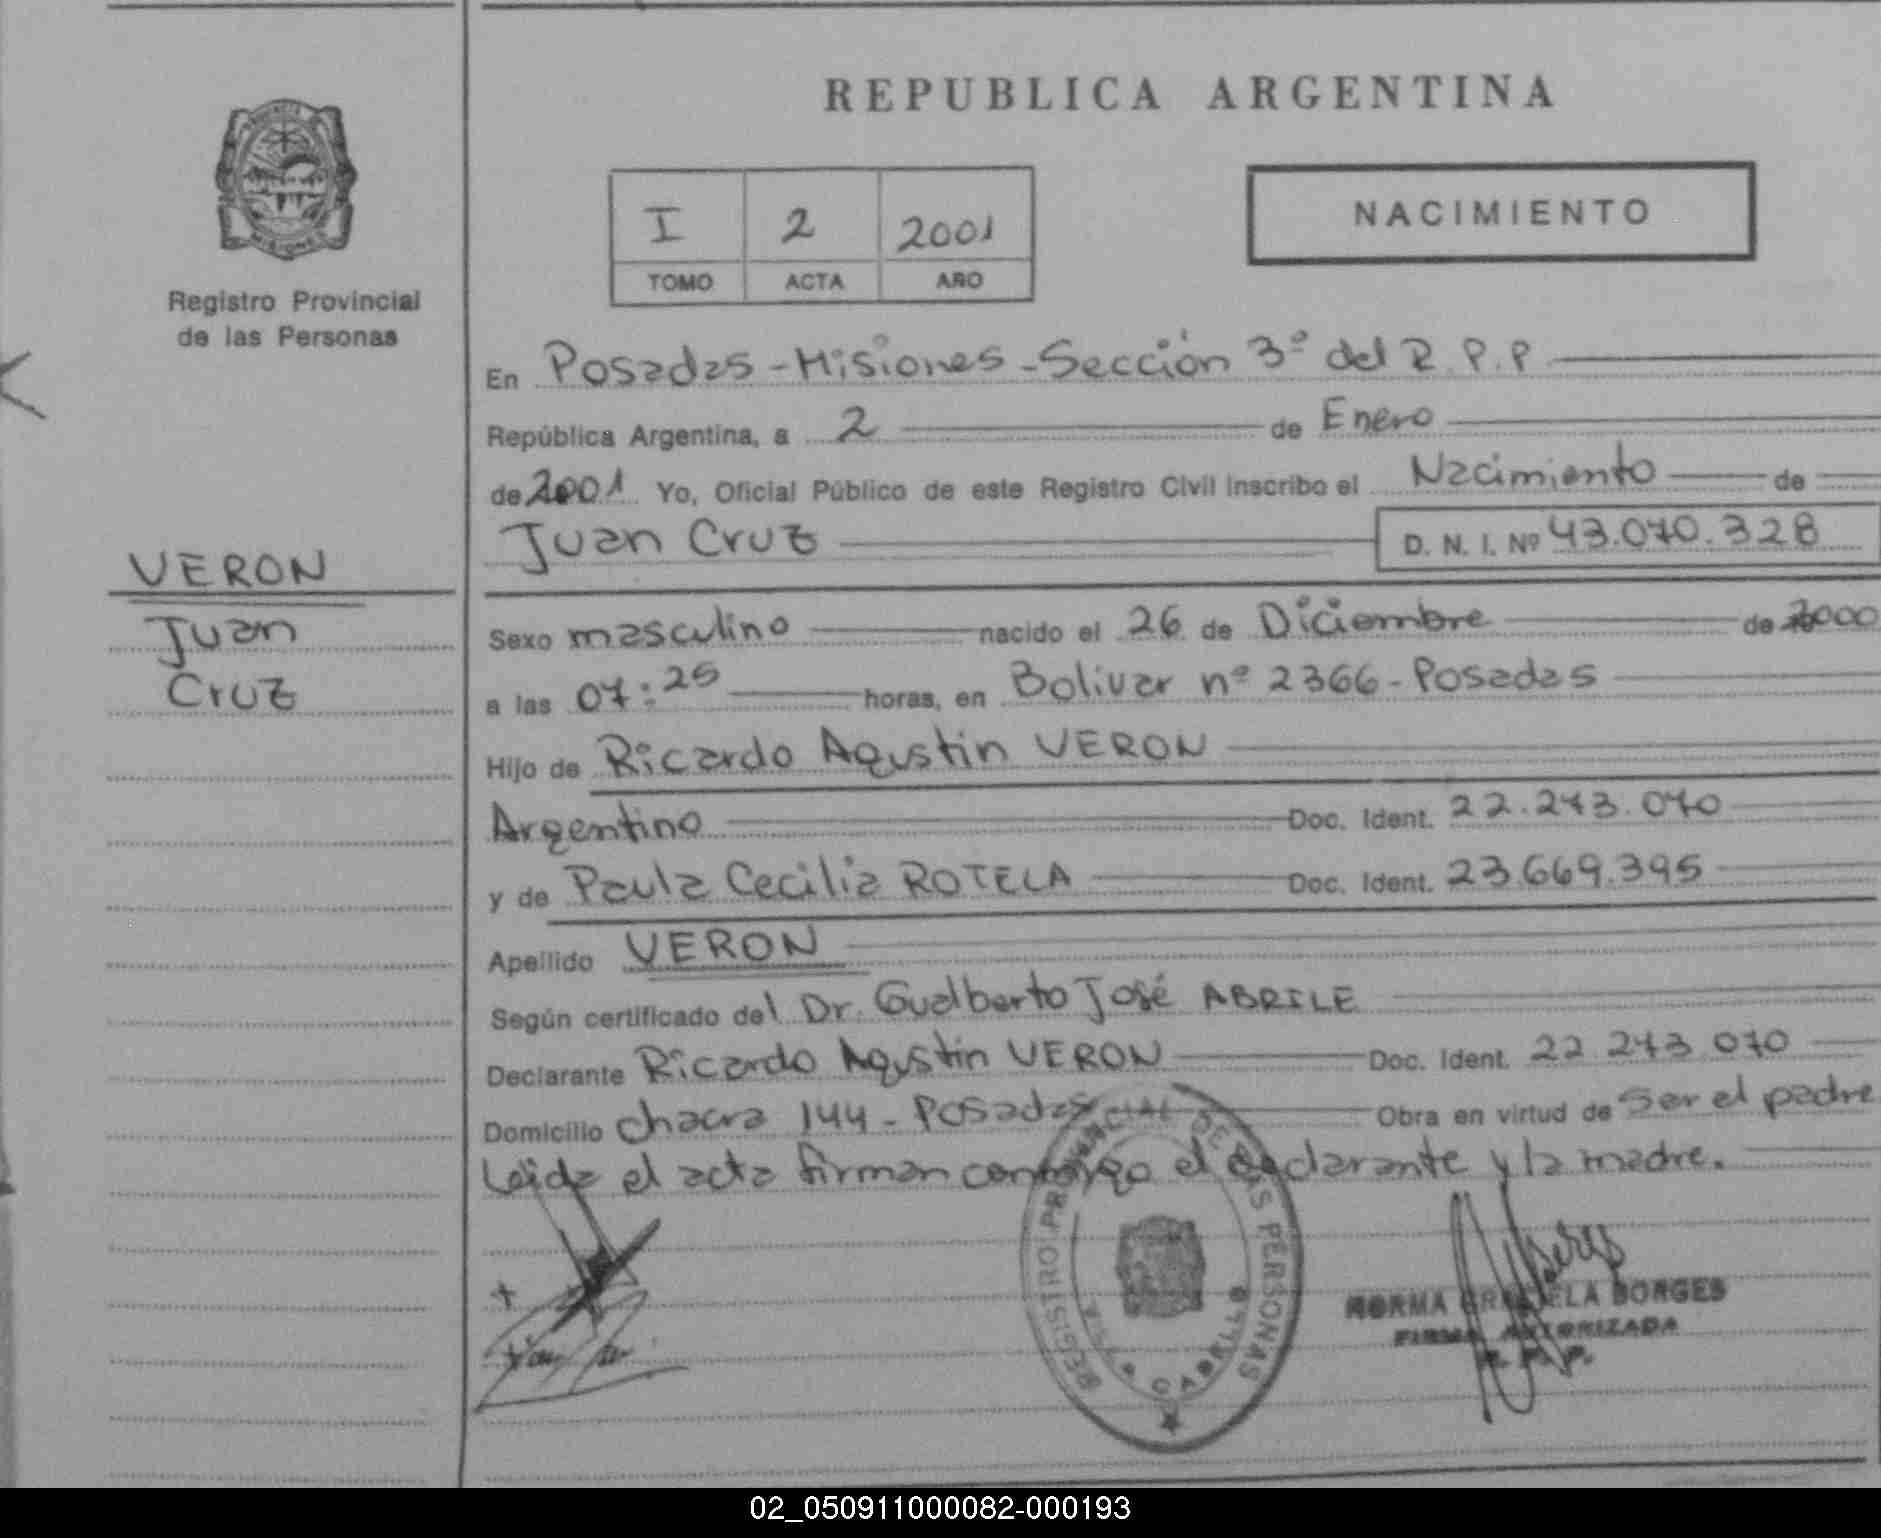 REPUBLICA ARGENTINA
I 2 2001
TOMO ACTA AÑO
NACIMIENTO
Registro Provincial
de las Personas
VERON
Juan
Cruz
En Posadas - Misiones - Sección 3º del R.P.P
República Argentina, a 2 de Enero
de 2001 Yo, Oficial Público de este Registro Civil inscribo el Nacimiento de
Juan Cruz D. N. I. Nº 43.070.328
Sexo masculino nacido el 26 de Diciembre de 2000
a las 07:25 horas, en Bolivar nº 2366 - Posadas
Hijo de Ricardo Agustin VERON
Argentino Doc. Ident. 22.273.070
y de Paula Cecilia ROTELA Doc. Ident. 23.669.395
Apellido VERON
Según certificado del Dr. Gualberto José ABRILE
Declarante Ricardo Agustin VERON Doc. Ident. 22.273.070
Domicilio chacra 144 - Posadas Obra en virtud de ser el padre
Leida el acta firman conmigo el declarante y la madre.
REGISTRO PROVINCIAL DE LAS PERSONAS
VILLA CABELLO
NORMA GRACIELA BORGES
FIRMA AUTORIZADA
R. P. P.
02_050911000082-000193